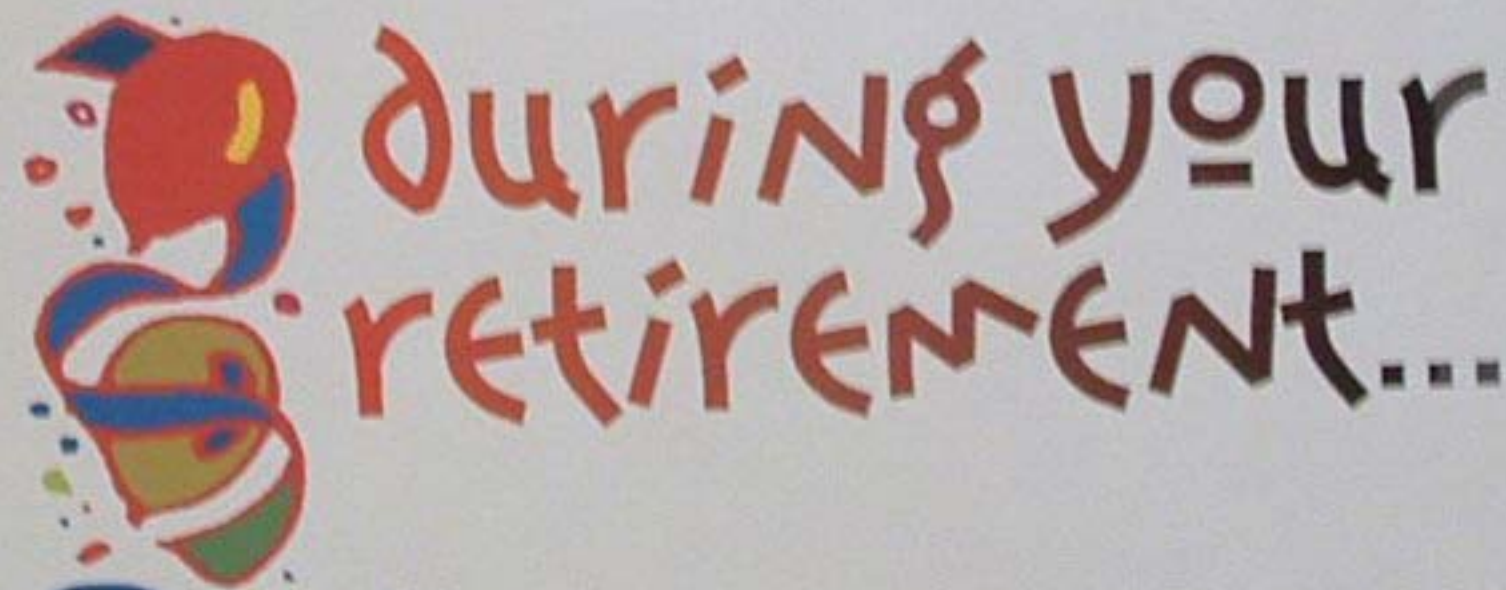 during your
retirement...